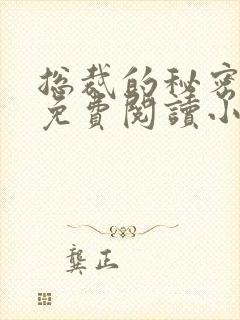 总裁的秘密
免費閱讀小
龔正